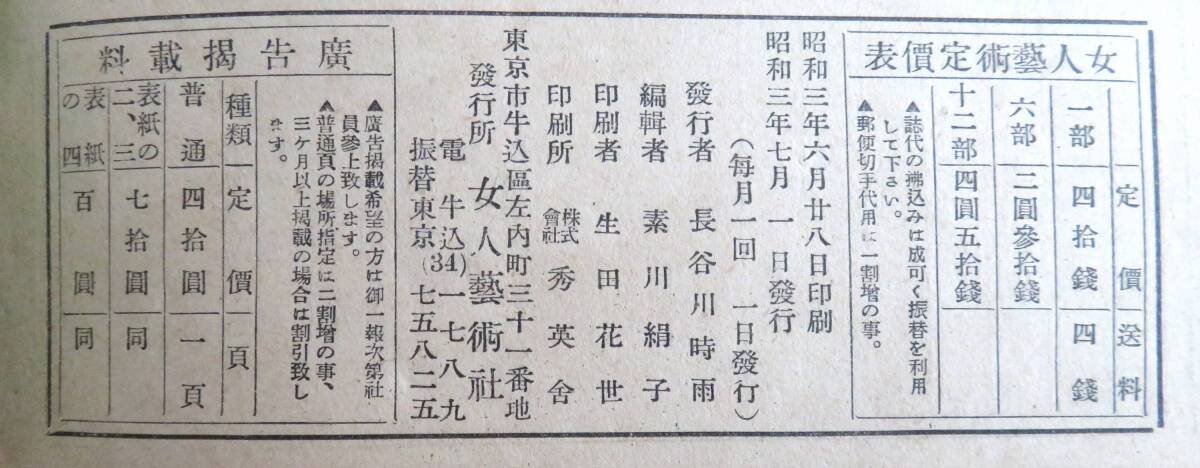 女人藝術定價表
定價 送料
一部 四拾錢 四錢
六部 二圓參拾錢
十二部 四圓五拾錢
▲誌代の拂込みは成可く振替を利用
して下さい。
▲郵便切手代用は一割増の事。
昭和三年六月廿八日印刷
昭和三年七月一日發行
(每月一回 一日發行)
發行者 長谷川時雨
編輯者 素川絹子
印刷者 生田花世
印刷所 株式會社 秀英舍
東京市牛込區左內町三十一番地
發行所 女人藝術社
電 牛込(34)一七八九
振替東京 七五八二五
廣告揭載料
▲廣告揭載希望の方は御一報次第社
員參上致します。
▲普通頁の場所指定は二割增の事、
三ケ月以上揭載の場合は割引致し
ます。
種類 定價 頁
普通 四拾圓 一頁
表紙の二、三 七拾圓 同
表紙の四 百圓 同